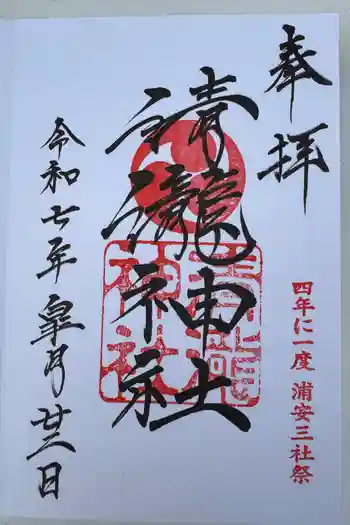 奉拝
清瀧神社
清瀧
神社
四年に一度 浦安三社祭
令和七年 皐月 廿三日